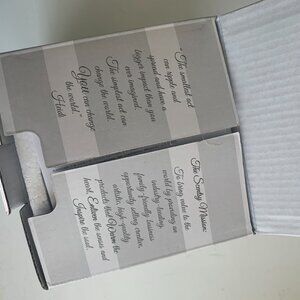 "The smallest act
can ripple and
spread and have a
bigger impact than you
ever imagined.
The simplest act can
change the world.
YOU can change
the world."
Heidi
The Scentsy Mission:
To bring value to the
world by providing an
industry-leading,
family-friendly business
opportunity selling creative,
artistic, high-quality
products that Warm the
heart, Enliven the senses and
Inspire the soul.